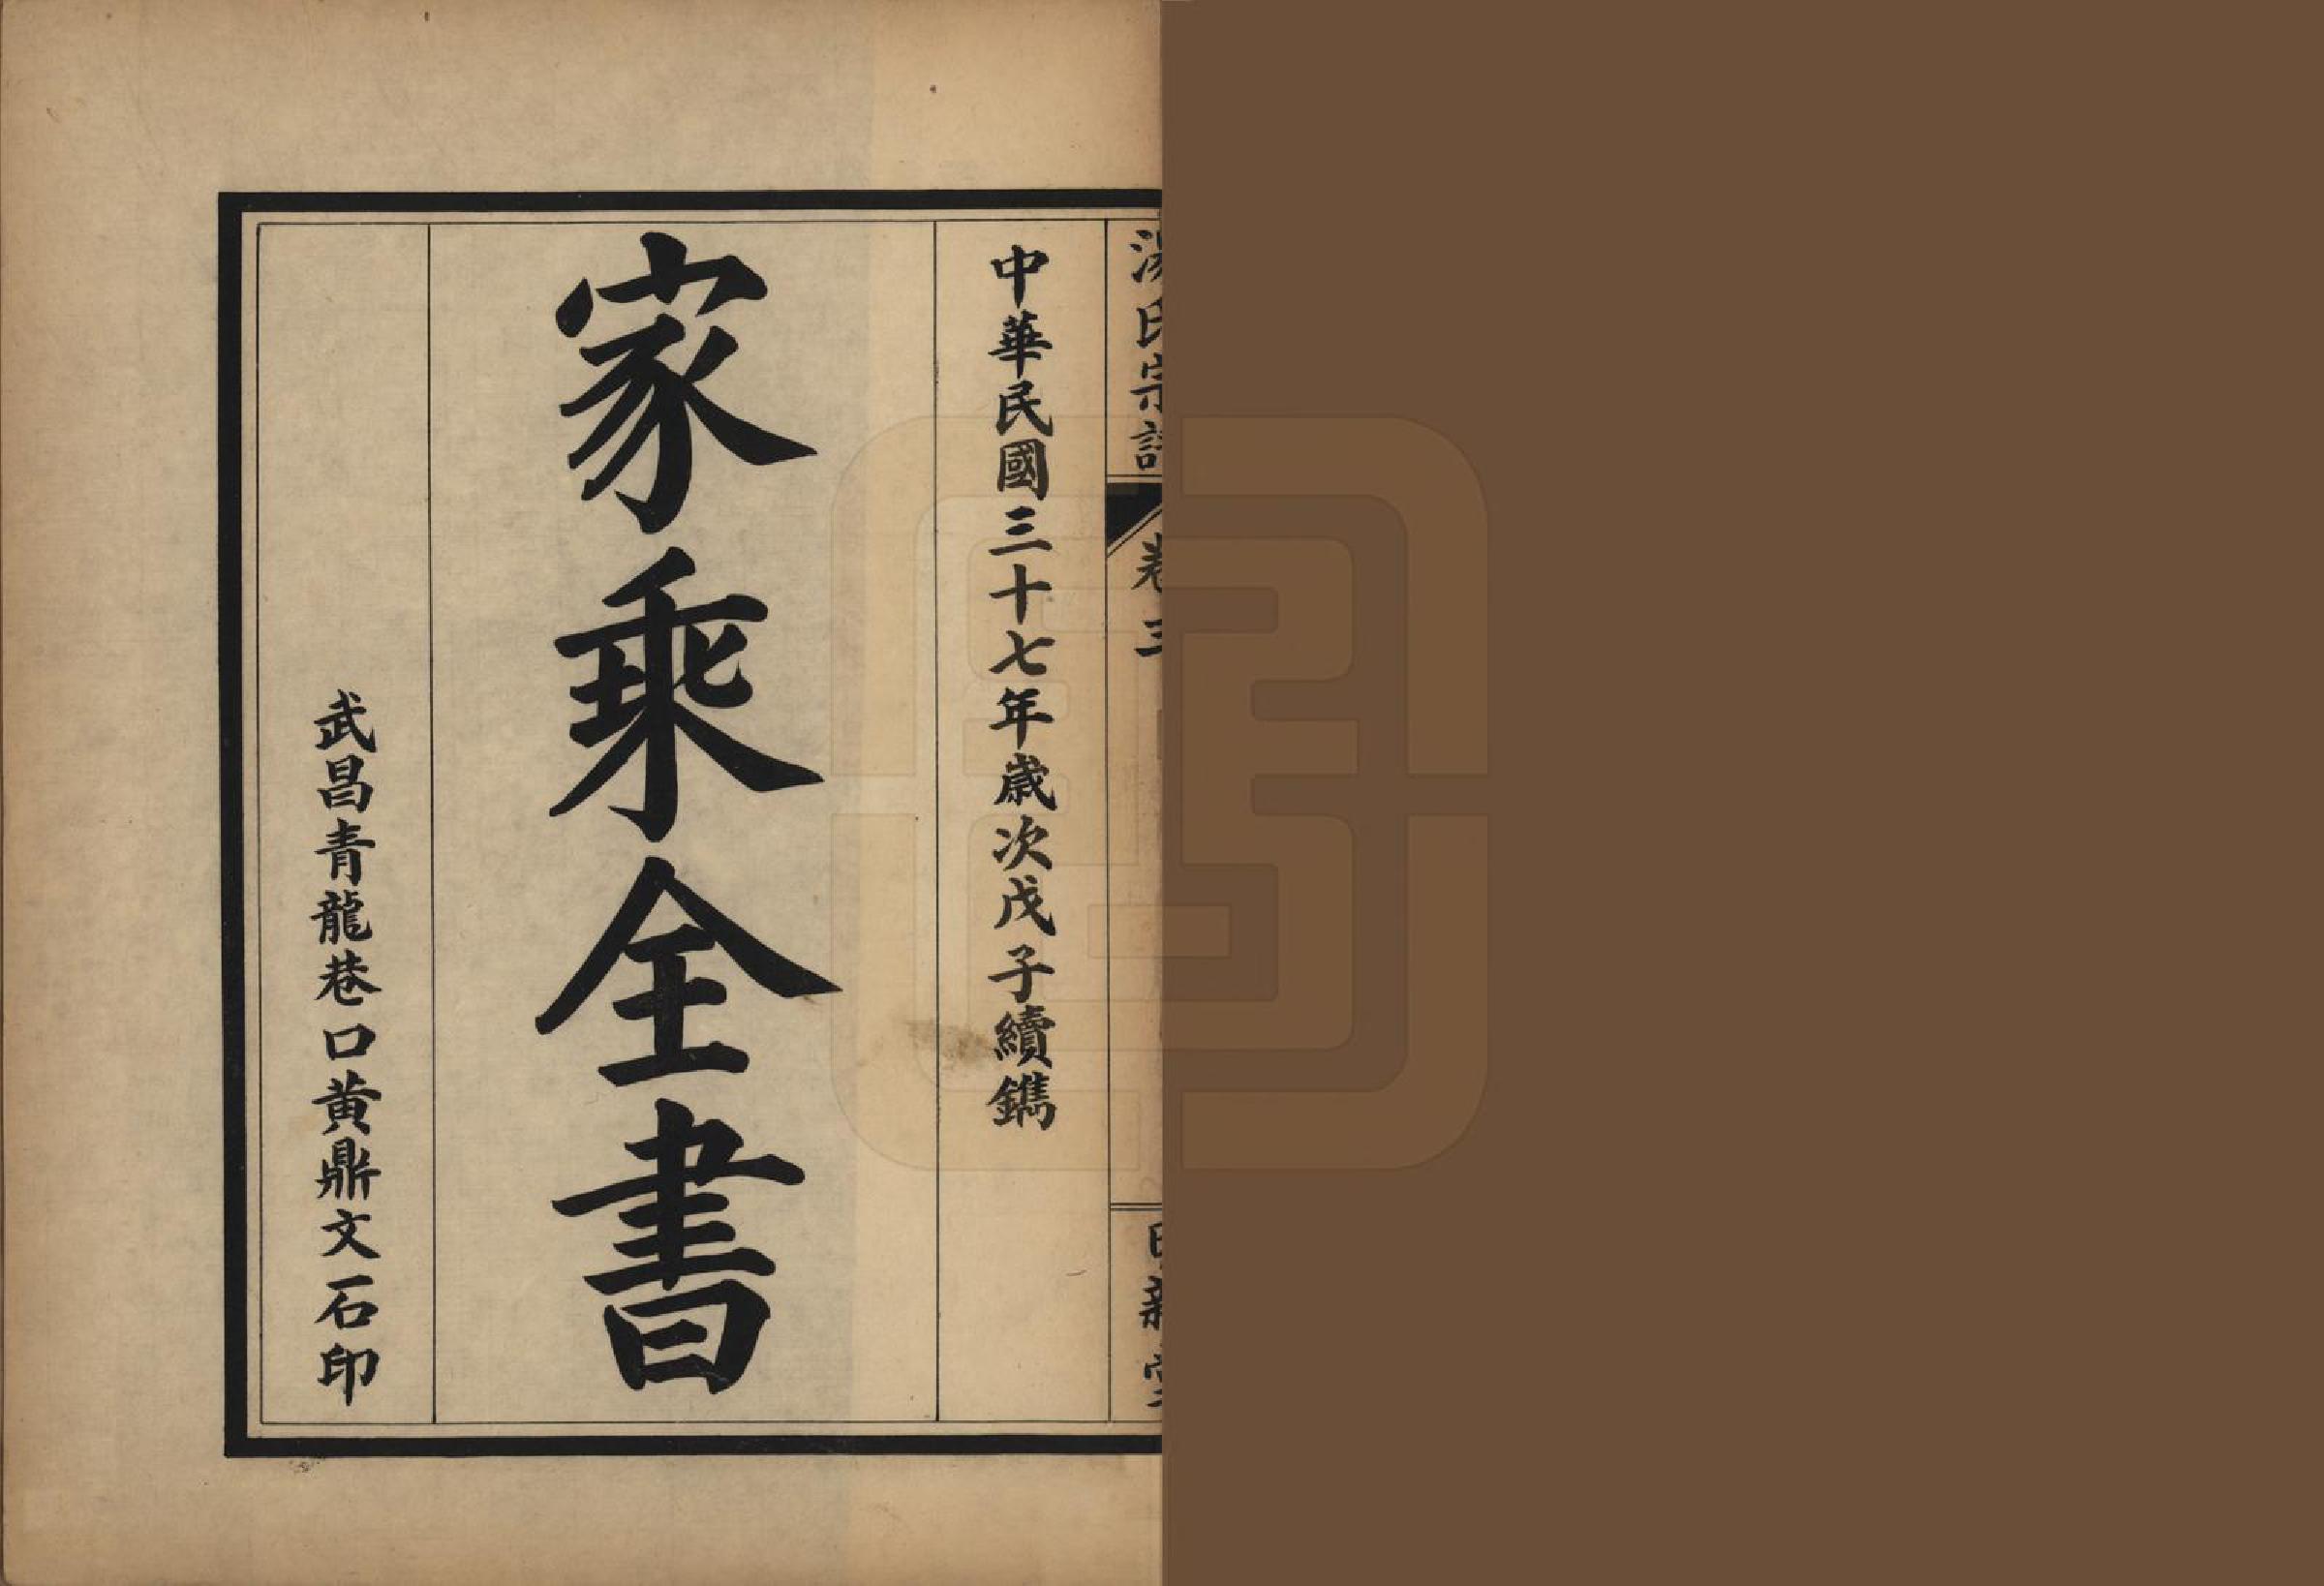 湯氏宗譜
卷三
日新堂
中華民國三十七年歲次戊子續鐫
家乘全書
武昌青龍巷口黄鼎文石印